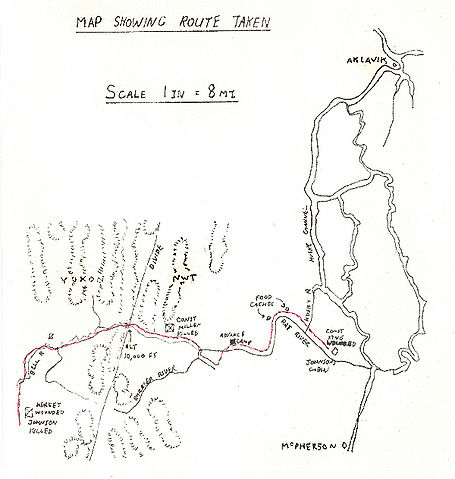 MAP SHOWING ROUTE TAKEN
SCALE 1 IN = 8 MI
AKLAVIK
YUKON
DIVIDE
NWT
CONST
MILLEN
KILLED
FOOD
CACHES
HUSKY R
ADVANCE
CAMP
RAT RIVER
CONST
KING
WOUNDED
JOHNSON,
CABIN
ALT
10,000 FT
BELL R
BARRIER RIVER
HERSEY
WOUNDED
JOHNSON
KILLED
McPHERSON